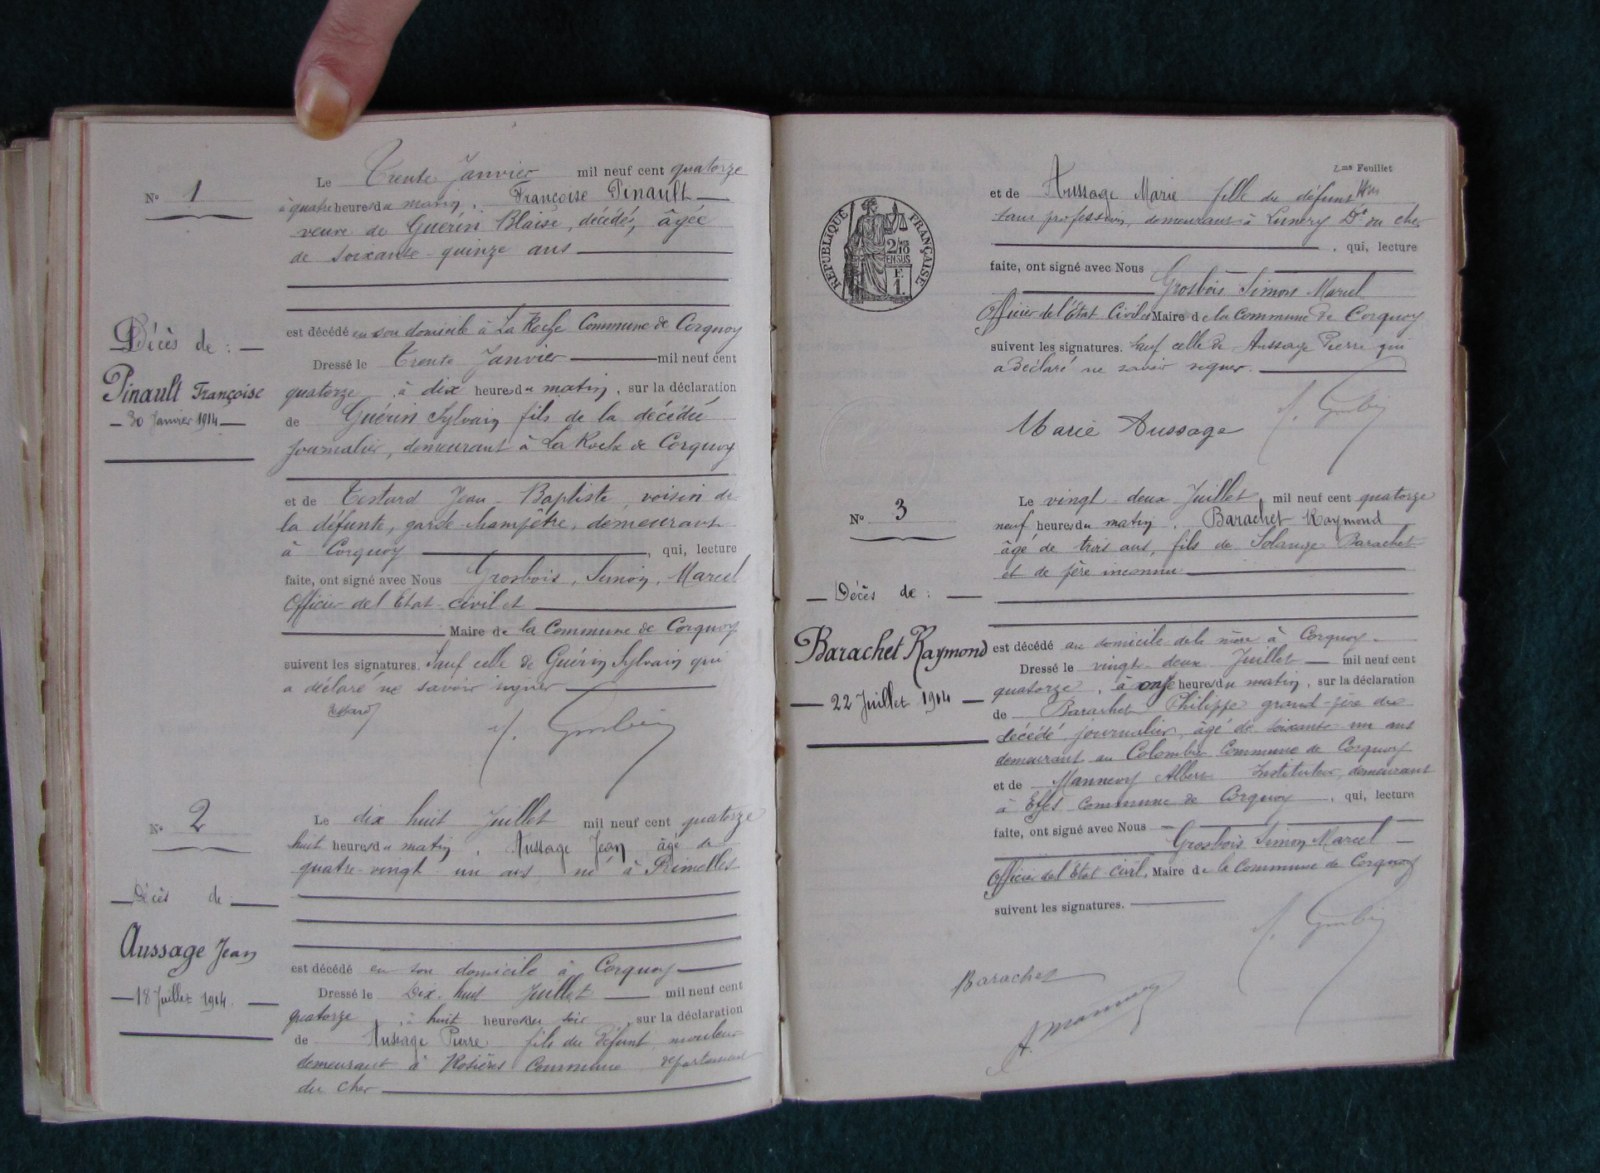 N° 1
Décès de :
Pinault Françoise
30 Janvier 1914
Le Trente Janvier mil neuf cent quatorze
à quatre heure du matin, Françoise Pinault
veuve de Guérin Blaise, décédé, âgée
de soixante-quinze ans
est décédé en son domicile à La Roche Commune de Corquoy
Dressé le Trente Janvier mil neuf cent
quatorze, à dix heures du matin, sur la déclaration
de Guérin Sylvain fils de la décédée
journalier, demeurant à La Roche de Corquoy
et de Testard Jean-Baptiste, voisin de
la défunte, garde-champêtre, demeurant
à Corquoy, qui, lecture
faite, ont signé avec Nous Grosbois, Simon, Marcel
Officier de l'Etat civil et
Maire de la Commune de Corquoy
suivent les signatures. Sauf celle de Guérin Sylvain qui
a déclaré ne savoir signer
N° 2
Décès de :
Aussage Jean
18 Juillet 1914
Le dix huit Juillet mil neuf cent quatorze
huit heure du matin, Aussage Jean âgé de
quatre-vingt un ans, né à Primelles
est décédé en son domicile à Corquoy
Dressé le Dix-huit Juillet mil neuf cent
quatorze, à huit heures du soir, sur la déclaration
de Aussage Pierre fils du défunt,
demeurant à Rosières Commune département
du Cher
2me Feuillet
RÉPUBLIQUE FRANÇAISE
2/10 EN SUS
F. 1.
et de Aussage Marie fille du défunt,
sans profession, demeurant à Lunery Dt du cher
, qui, lecture
faite, ont signé avec Nous
Grosbois Simon Marcel
Officier de l'Etat Civil et Maire de la Commune de Corquoy
suivent les signatures. Sauf celle de Aussage Pierre qui
a déclaré ne savoir signer.
Marie Aussage
N° 3
Décès de :
Barachet Raymond
22 Juillet 1914
Le vingt-deux Juillet, mil neuf cent quatorze
neuf heures du matin, Barachet Raymond
âgé de trois ans, fils de Solange Barachet
et de père inconnu
est décédé au domicile de la mère à Corquoy.
Dressé le vingt-deux Juillet mil neuf cent
quatorze, à onze heures du matin, sur la déclaration
de Barachet Philippe grand-père du
décédé, journalier, âgé de soixante un ans
demeurant au Colombier Commune de Corquoy
et de Mannevy Albert Instituteur, demeurant
à Commune de Corquoy, qui, lecture
faite, ont signé avec Nous
Grosbois Simon Marcel
Officier de l'Etat civil, Maire de la Commune de Corquoy
suivent les signatures.
Barachet